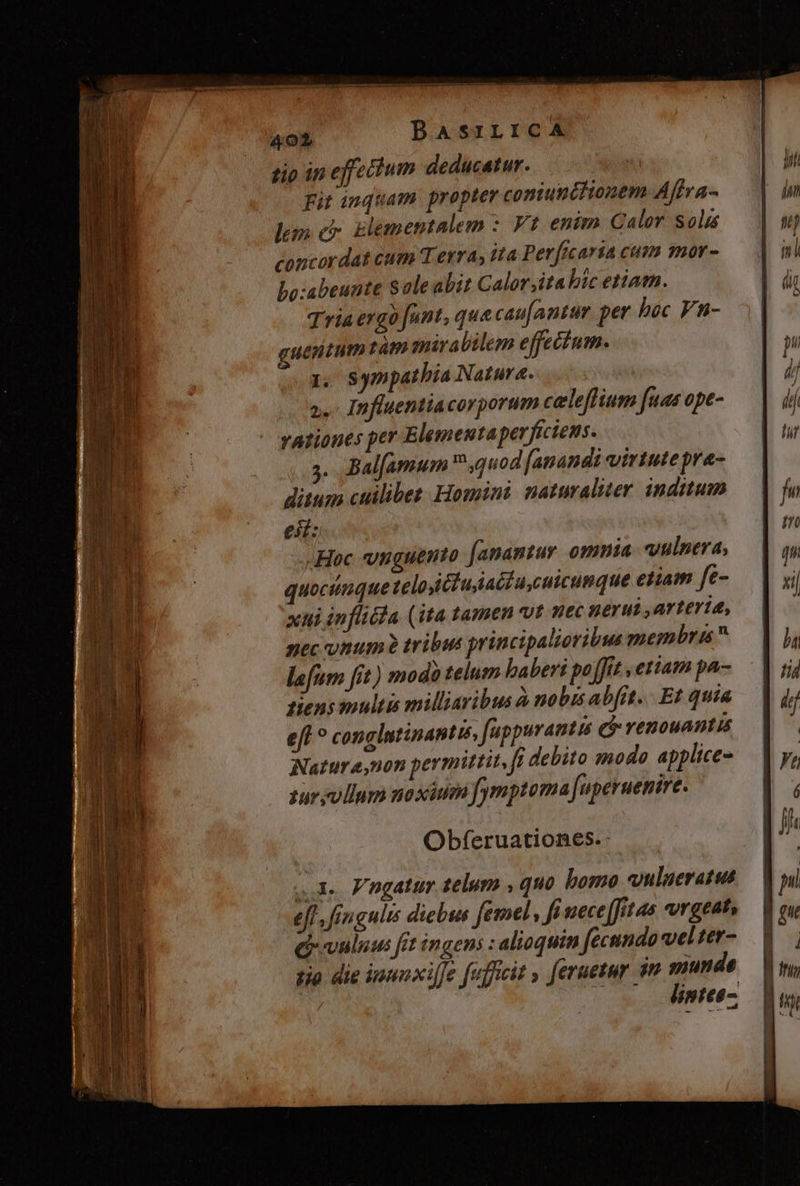 402 BASILICA
tio in effectum deducatur.
Fit inquam propter coniunctionem Aſtra-
lem & Elementalem : Vt enim Calor Solis
concordat cum Terra, ita Perſicaria cum mor-
bo: abeunte Sole abit Calor, ita hic etiam.
Tria ergò ſunt, quæ cauſantur per hoc Vn-
guentum tàm mirabilem effectum.
1. Sympathia Naturæ.
2. Influentia corporum cæleſtium ſuas ope-
rationes per Elementa perficiens.
3. Balſamum m, quod ſanandi virtute præ-
ditum cuilibet Homini naturaliter inditum
eſt:
Hoc vnguento ſanantur omnia vulnera,
quocúnque telo, ictu, iactu, cuicunque etiam ſe-
xui inflicta (ita tamen vt nec nerui, arteriæ,
nec vnum è tribus principalioribus membris n
læſum ſit) modò telum haberi poſſit, etiam pa-
tiens multis milliaribus à nobis abſit. Et quia
eſt o conglutinantis, ſuppurantis & renouantis
Naturæ, non permittit, ſi debito modo applice-
tur, vllum noxium ſymptoma ſuperuenire.
Obſeruationes.
1. Vngatur telum, quo homo vulneratus
eſt, ſingulis diebus ſemel, ſi neceſſitas vrgeat,
& vulnus ſit ingens : alioquin ſecundo vel ter-
tio die inunxiſſe ſufficit, ſeruetur in munde
lintea-